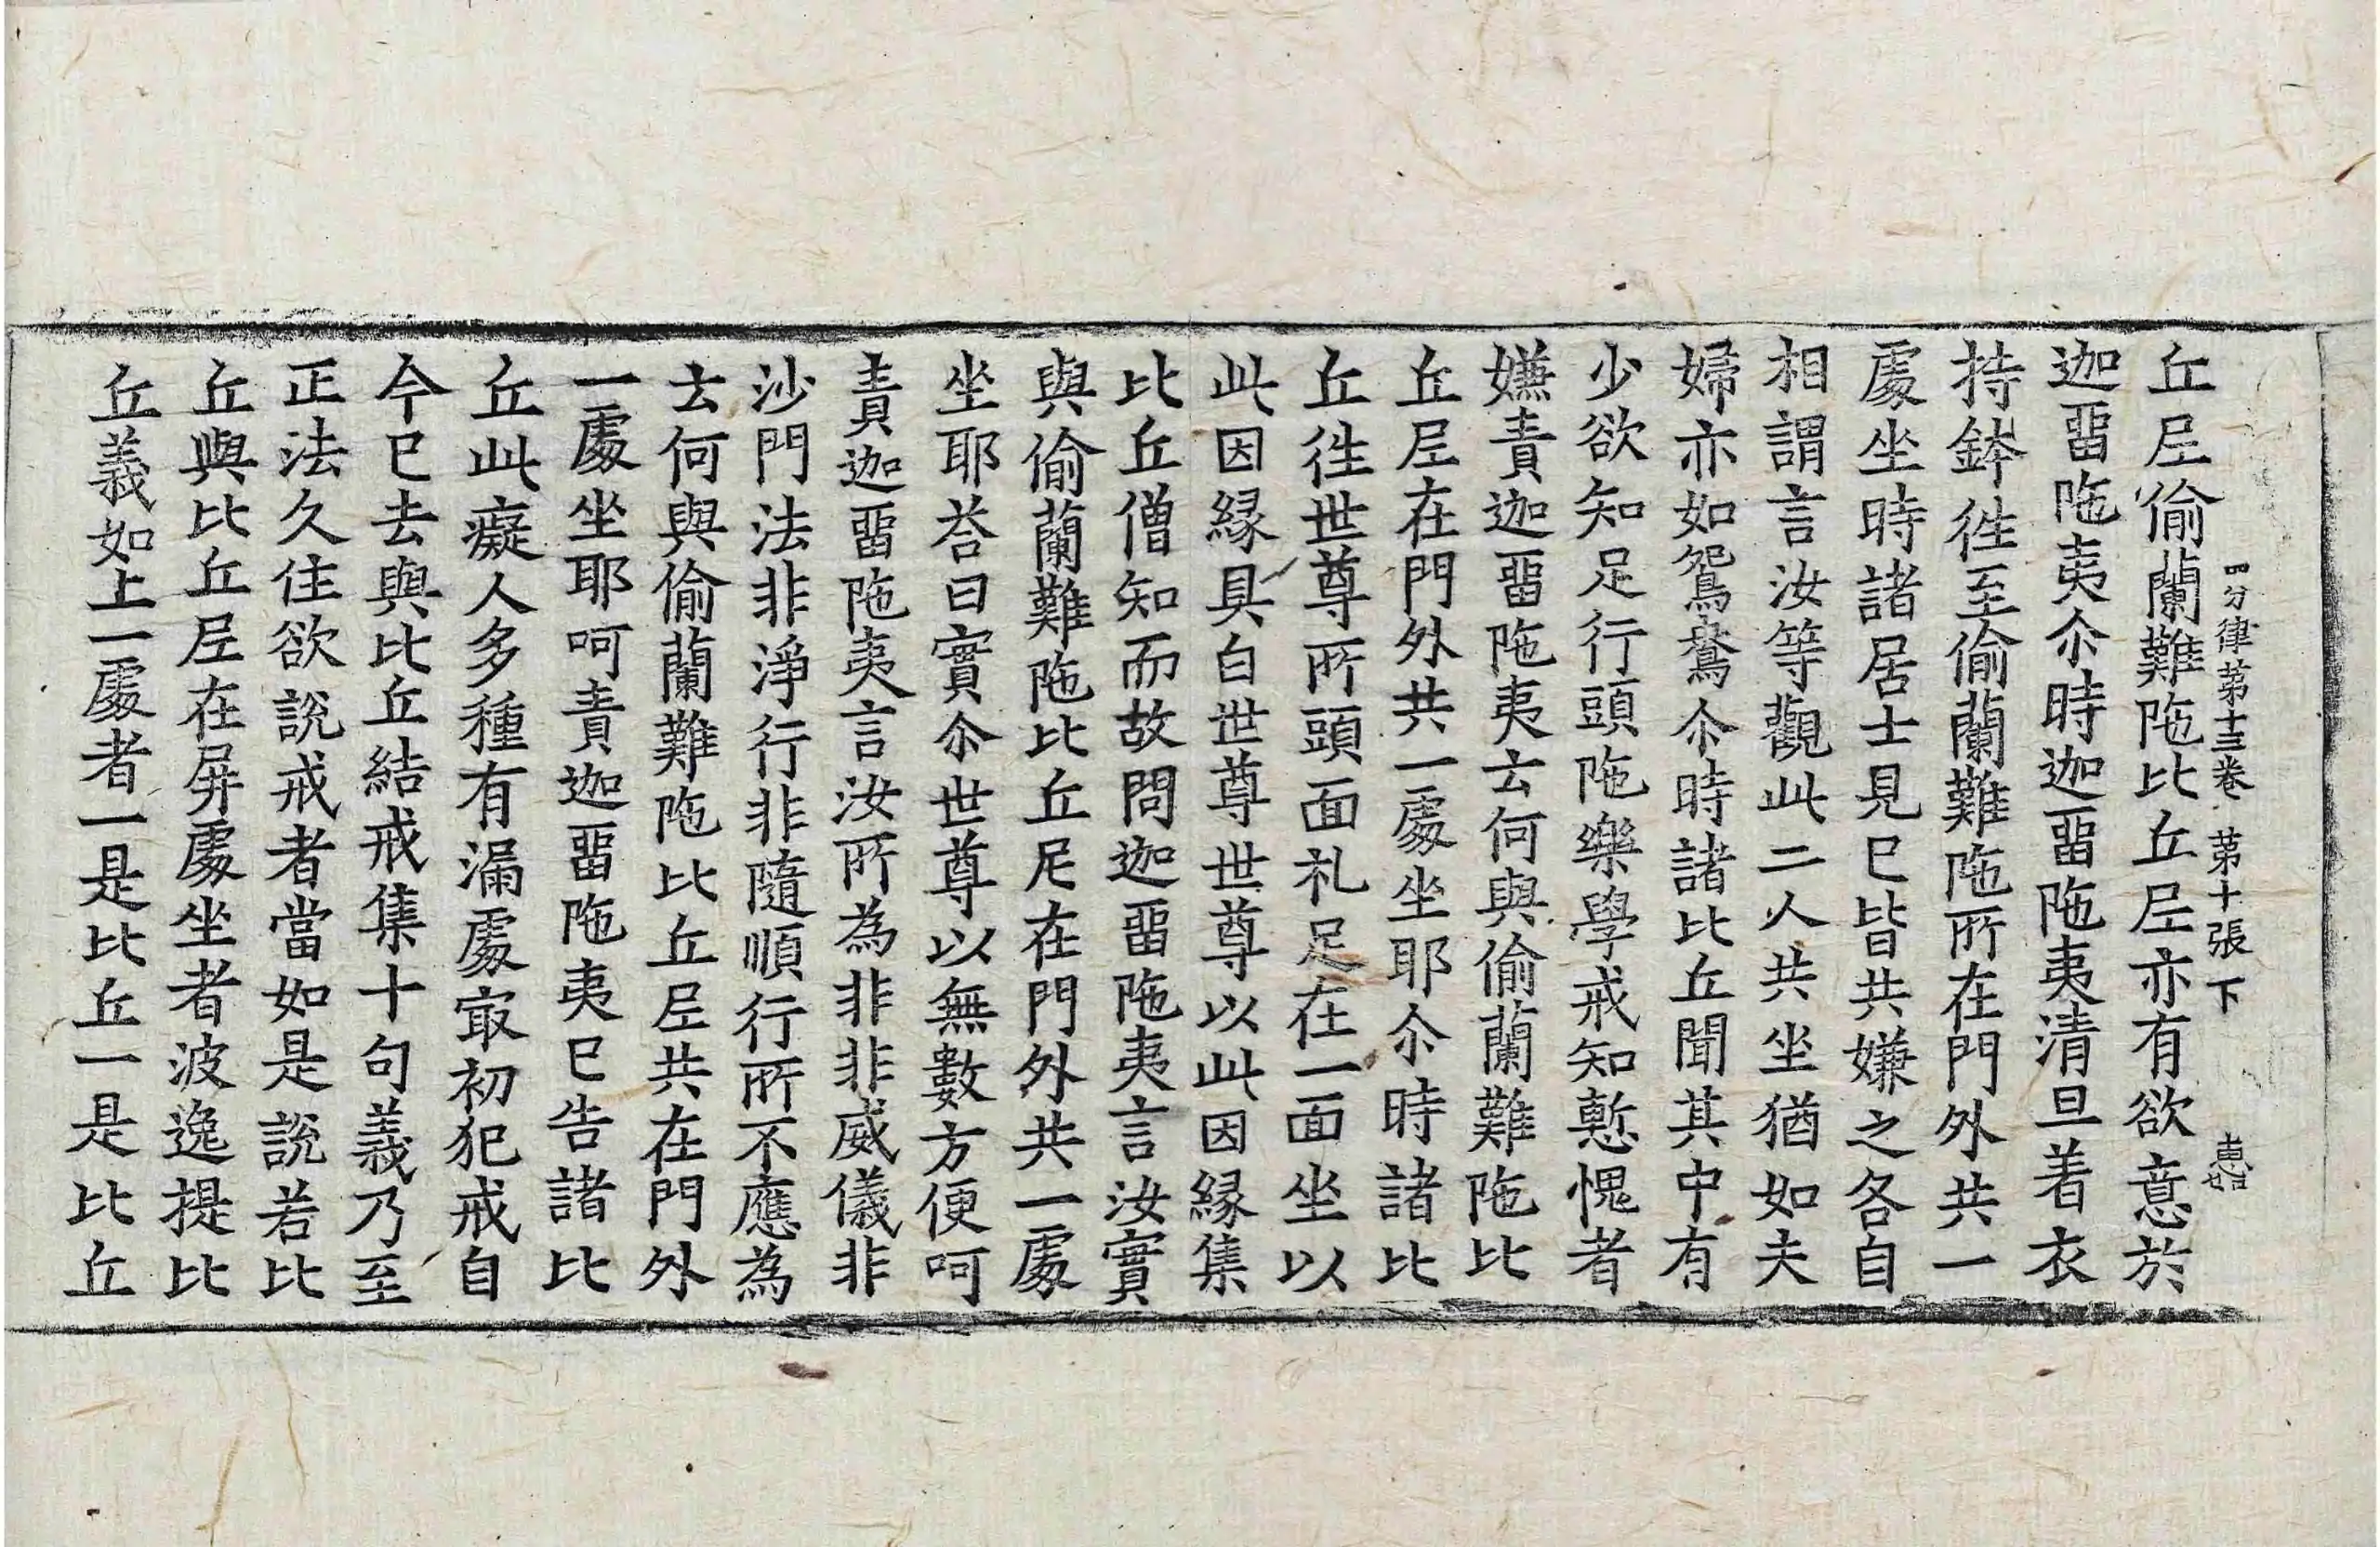 丘𡰱偷蘭難陁比丘𡰱亦有欲意於
四分律苐十三卷 苐十張 下
迦畱陁夷尒時迦畱陁夷清旦着衣
持鉢徃至偷蘭難陁所在門外共一
處坐時諸居士見已皆共嫌之各自
相謂言汝等觀此二人共坐猶如夫
婦亦如鴛鴦尒時諸比丘聞其中有
少欲知足行頭陁樂學戒知慙愧者
嫌責迦畱陁夷云何與偷蘭難陁比
丘𡰱在門外共一處坐耶尒時諸比
丘徃世尊所頭面礼足在一面坐以
此因縁具白世尊世尊以此因縁集
比丘僧知而故問迦畱陁夷言汝實
與偷蘭難陁比丘尼在門外共一處
坐耶荅曰實尒世尊以無數方便呵
責迦畱陁夷言汝所為非非威儀非
沙門法非淨行非隨順行所不應為
云何與偷蘭難陁比丘𡰱共在門外
一處坐耶呵責迦畱陁夷已告諸比
丘此癡人多種有漏處冣初犯戒自
今已去與比丘結戒集十句義乃至
正法久住欲說戒者當如是說若比
丘與比丘𡰱在屏處坐者波逸提比
丘義如上一處者一是比丘一是比丘